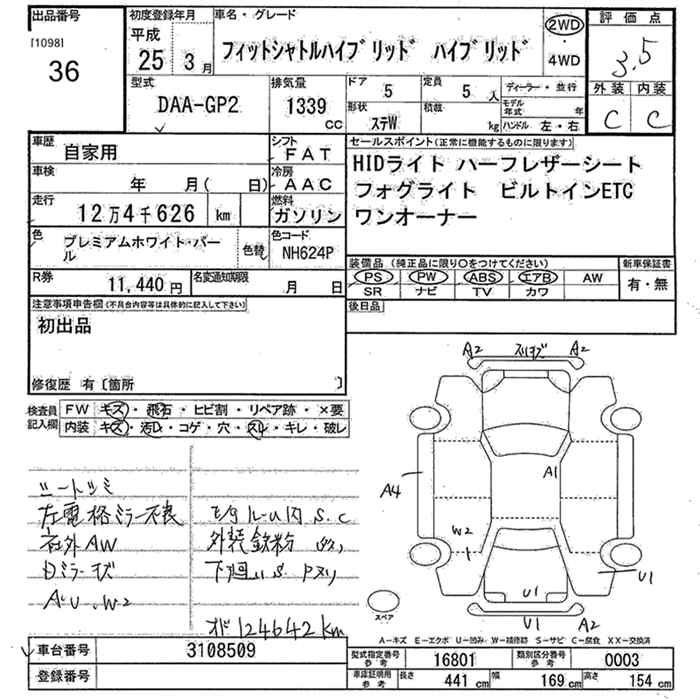 出品番号 初度登録年月 車名・グレード 評価点
[1098]
36
平成
25 3月
フィットシャトルハイブリッド ハイブリッド
2WD
・
4WD
3.5
型式 排気量 ドア 定員 ディーラー・並行
DAA-GP2 1339 cc 5 5人
形状 積載 kg
ステW
モデル年式 年
ハンドル 左・右
外装 内装
C C
車歴 シフト
自家用 FAT
車検 冷房
年 月( 日) AAC
走行 燃料
12万4千626 km ガソリン
色 色替 色コード
プレミアムホワイト・パール NH624P
R券 名変通知期限
11,440円 月 日
セールスポイント(正常に機能するものに限ります)
HIDライト ハーフレザーシート
フォグライト ビルトインETC
ワンオーナー
装備品(純正品に限り○をつけてください) 新車保証書
PS PW ABS エアB AW 有・無
SR ナビ TV カワ
後日品
注意事項申告欄(不具合内容等は具体的に記入して下さい)
初出品
修復歴 有〔箇所 〕
検査員記入欄
FW キズ・飛石・ヒビ割・リペア跡・×要
内装 キズ・汚レ・コゲ・穴・スレ・キレ・破レ
シートシミ
左電格ミラー不良
社外AW
Dミラーキズ
A.U.W2
ルーU内 S.C
外装鉄粉
下廻りS.Pスリ
オド124642km
A2 A2
A1
A4
W2
U1
U1
U1 A2
スペア
A-キズ E-エクボ U-凹み W-補修跡 S-サビ C-腐食 XX-交換済
車台番号 3108509
登録番号
型式指定番号 参考 16801 類別区分番号 参考 0003
車庫証明用 参考 長さ 441 cm 幅 169 cm 高さ 154 cm